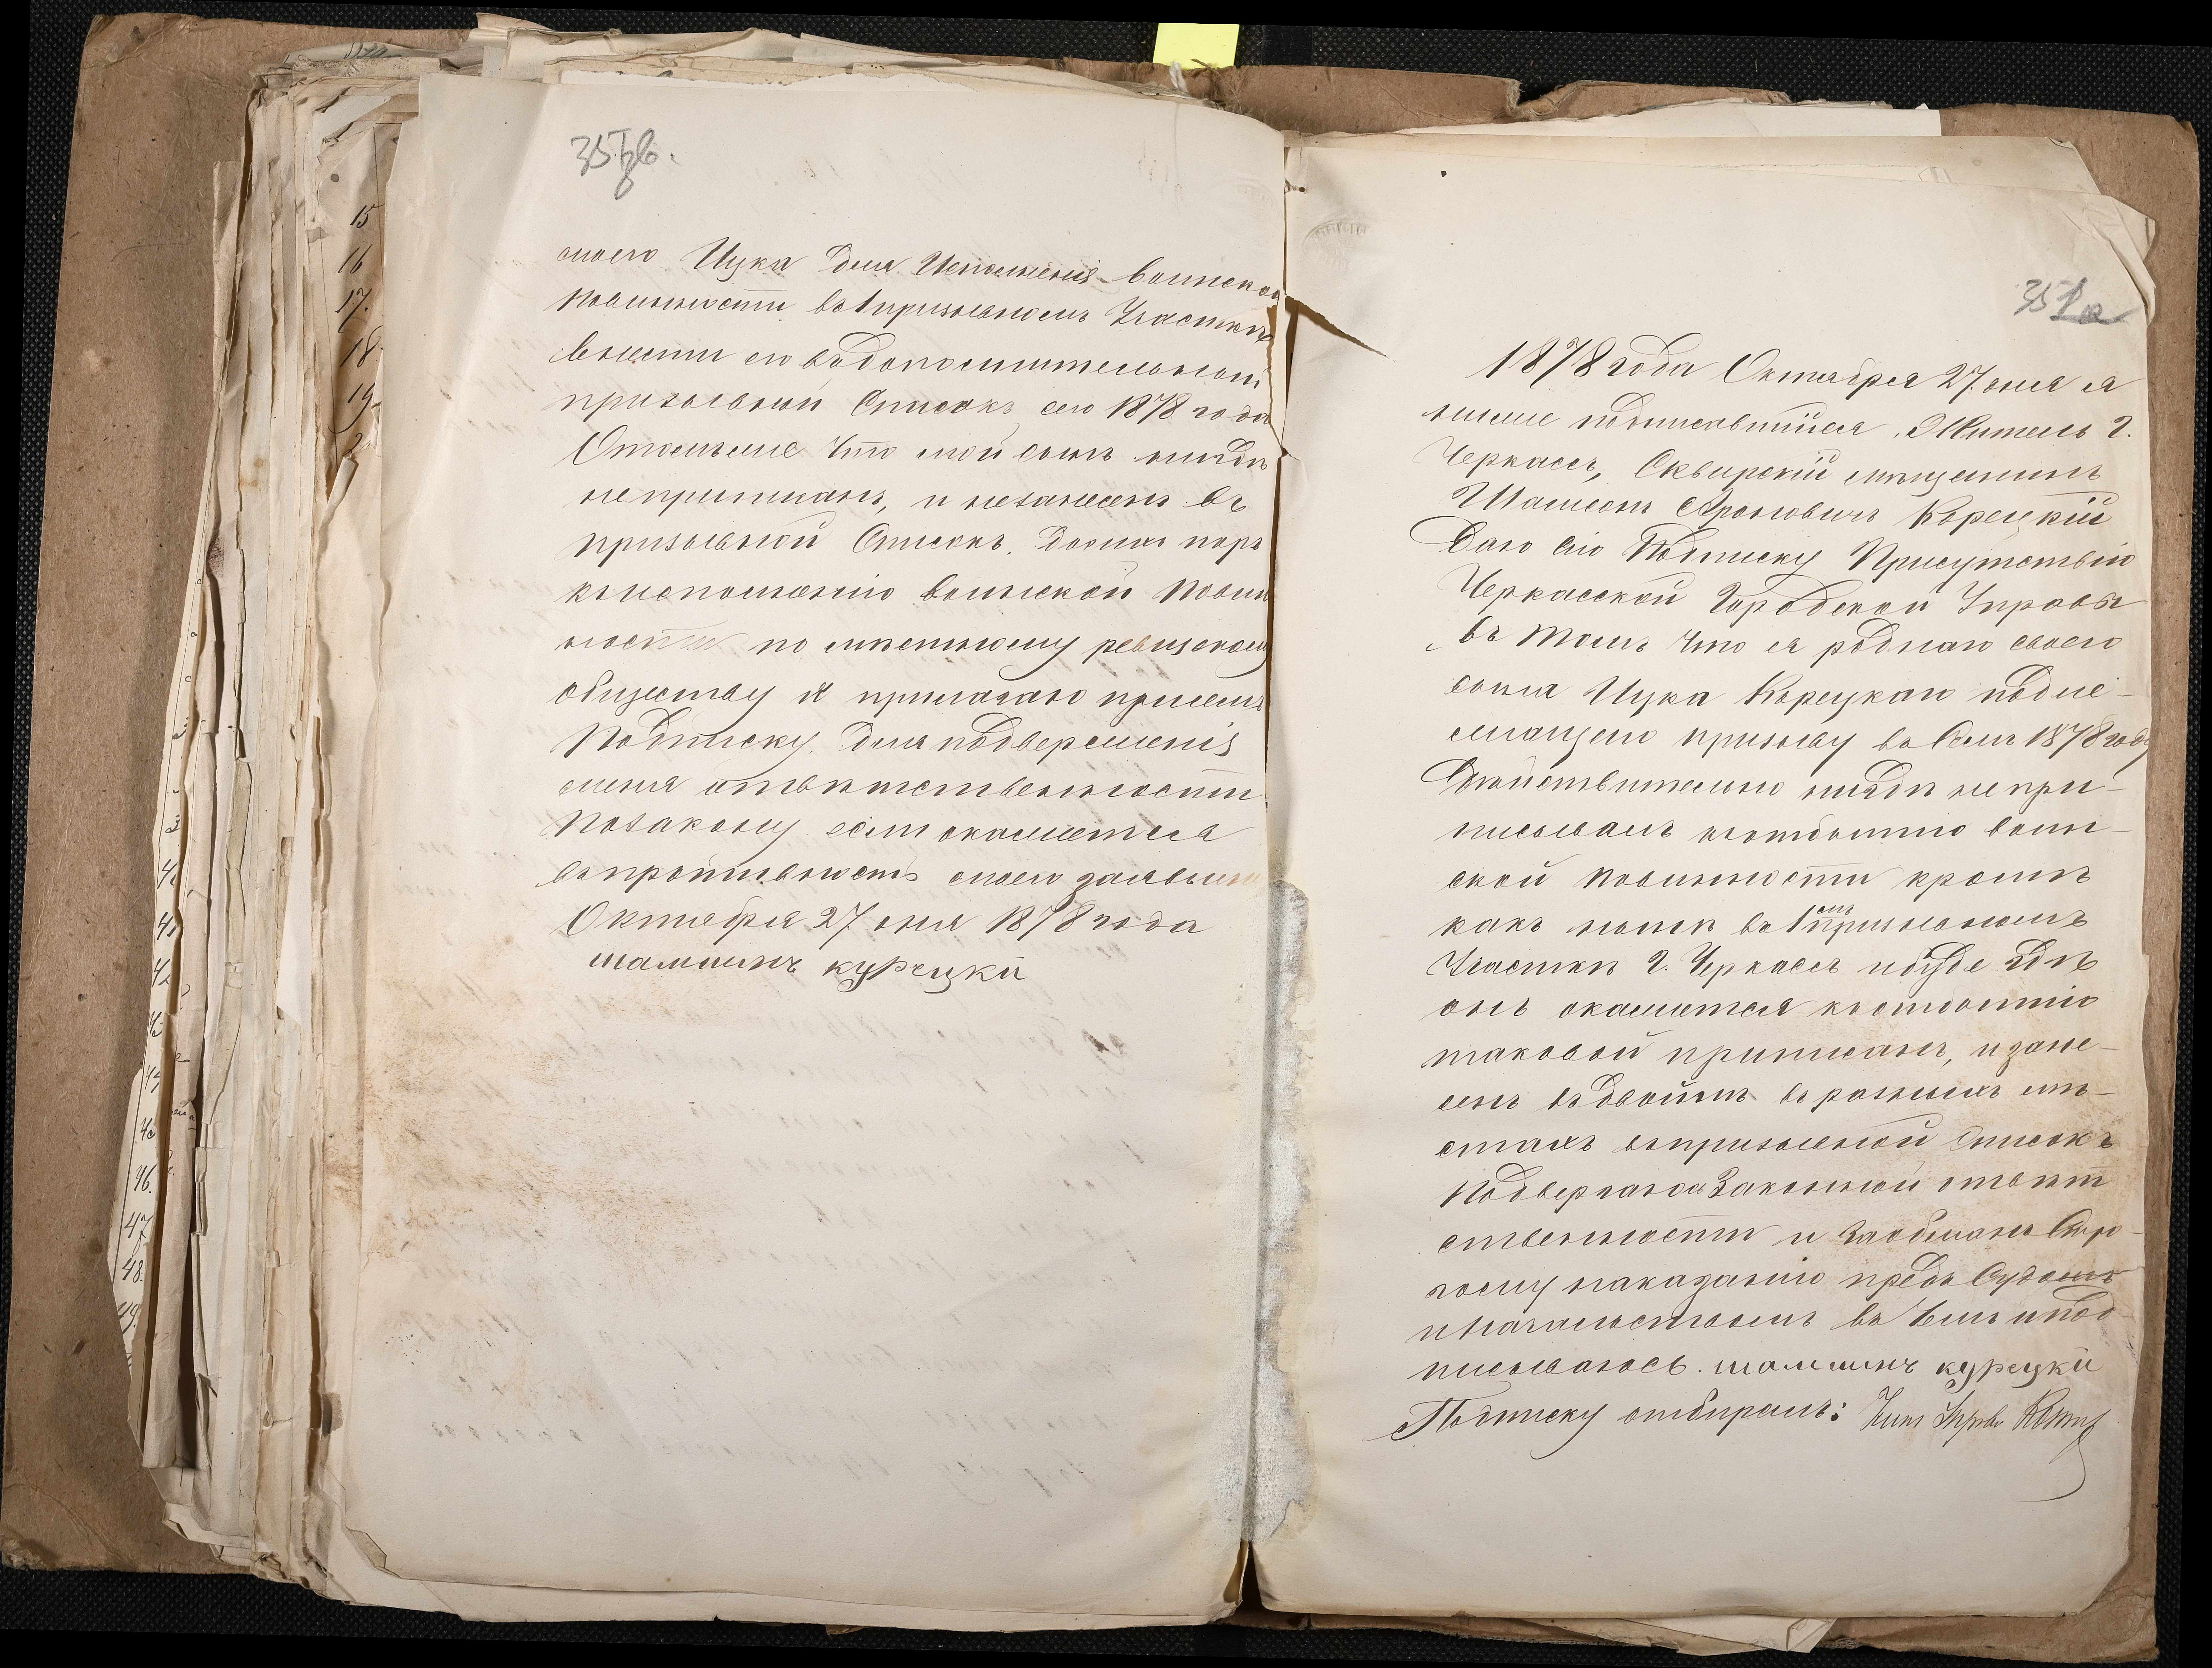 357 об.
моего Ицка для Исполненія воинской
повинности въ 1 призывномъ Участкѣ
внести его въ дополнительный
призывный Списокъ сего 1878 года
что мой сынъ нигдѣ
не приписанъ, и незанесенъ въ
призывной Списокъ. до сихъ поръ
къ исполненію воинской повин
ности по мѣстному ревизскому
обществу я прилагаю при семъ
Подписку для подверженія
меня отвѣтственности
по закону если окажется
въ противность моего заявленія
Октября 27 дня 1878 года
шамшинъ курецки
15
16
17.
18
19
46.
47
48.
49.
351а
1878 года Октября 27 дня я
ниже подписавшійся, Житель г.
Черкассъ, Сквирскій мѣщанинъ
Шамсонъ Ароновичъ Корецкій
Даю сію Подписку Присутствію
Черкасской Городской Управы
въ томъ что я роднаго своего
сына Ицка Корецкаго подле-
жащаго призыву въ Семъ 1878 году
Дѣйствительно нигдѣ не при-
писывалъ к отбытію воин-
ской повинности кромѣ
какъ нынѣ въ 1мъ призывномъ
Участкѣ г. Черкассъ и буде гдѣ
онъ окажется къ отбытію
таковой приписанъ, и зане-
сенъ въ двойнѣ въ разныхъ мѣ-
стахъ въ призывной Списокъ
Подвергаюсь Законной отвѣт
ственности и За обманъ Стро-
гому наказанію предъ Судомъ
и Начальствомъ въ Чемъ и под
писываюсь. шамшинъ курецки
Подписку отбиралъ: Член Управы